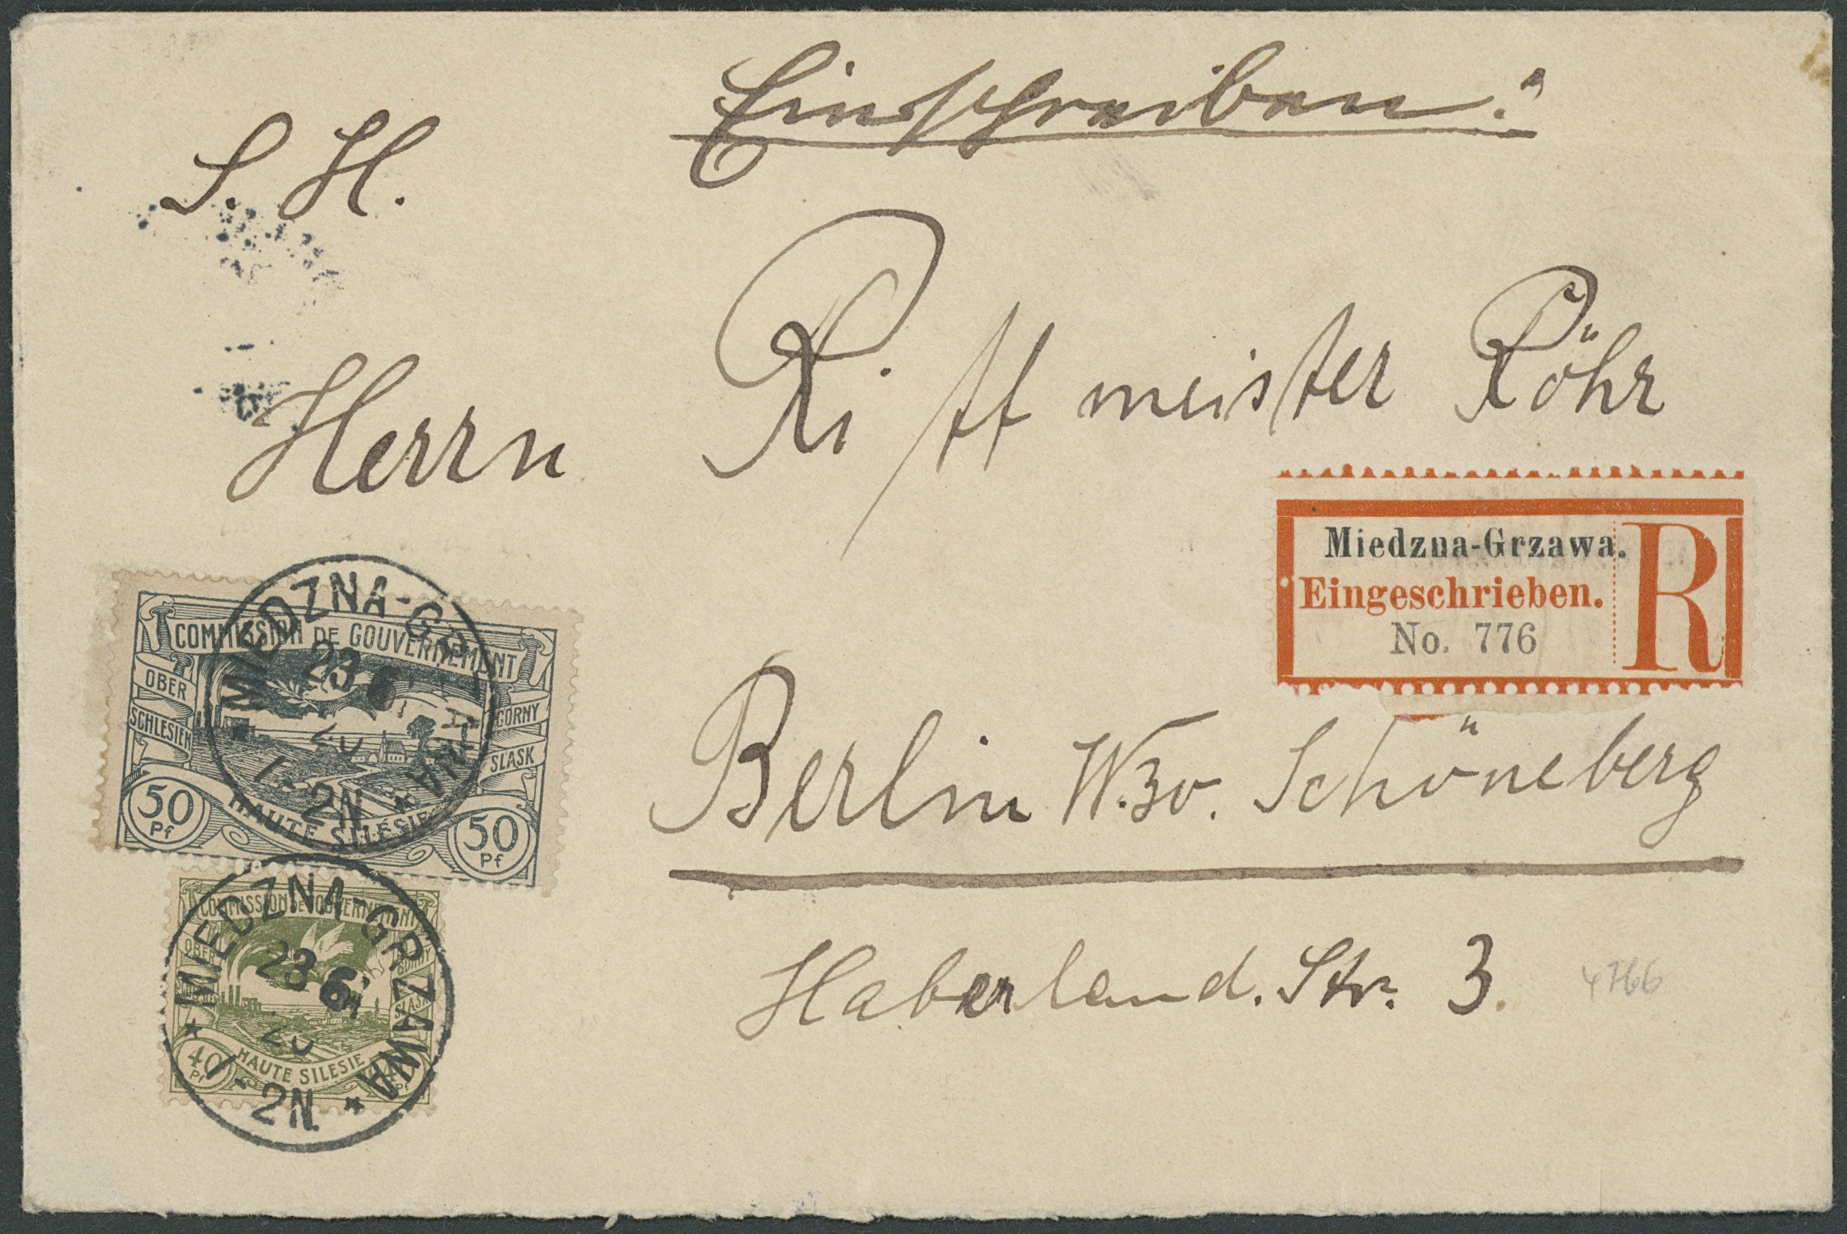 Einschreiben!
S. H.
Herrn Rittmeister Röhr
Miedzna-Grzawa.
Eingeschrieben.
No. 776
R
Berlin W. 30. Schöneberg
Haberland. Str. 3.
4766
COMMISSION DE GOUVERNEMENT
OBER
SCHLESIEN
GORNY
SLASK
50 Pf
HAUTE SILESIE
50 Pf
MIEDZNA-GRZAWA
23 6
20
1-2N
COMMISSION DE GOUVERNEMENT
OBER
GORNY
SLASK
40 Pf
HAUTE SILESIE
MIEDZNA-GRZAWA
23 6
20
1-2N.